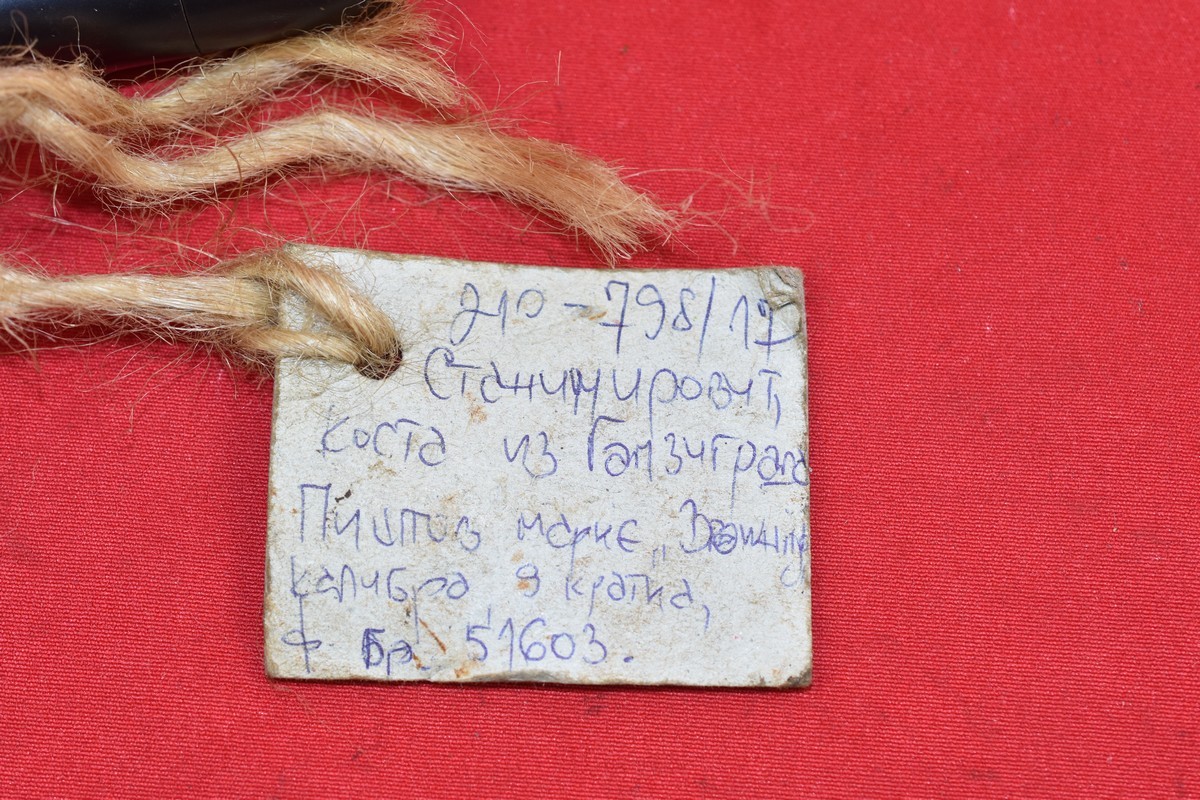 210-798/17
Станимировић,
Коста из Гамзиграда
Пиштољ марке „Browning
калибра 9 кратка,
ф бр. 51603.